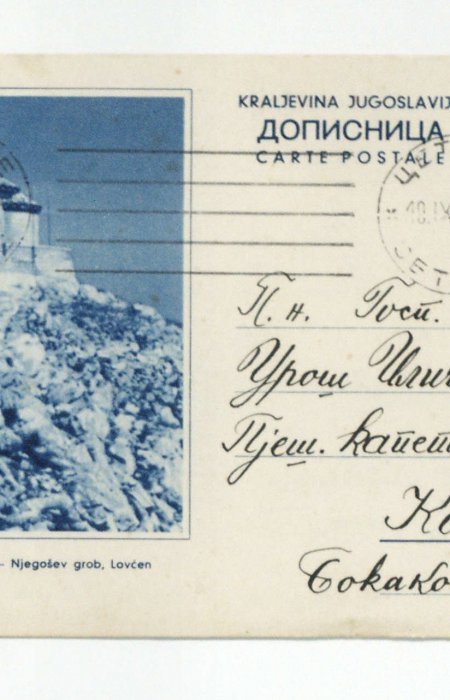 KRALJEVINA JUGOSLAVIJ
ДОПИСНИЦА
CARTE POSTALE
ЦЕТ
П. н. Госп.
Урош Илич
Пјеш. капет
Njegošev grob, Lovćen